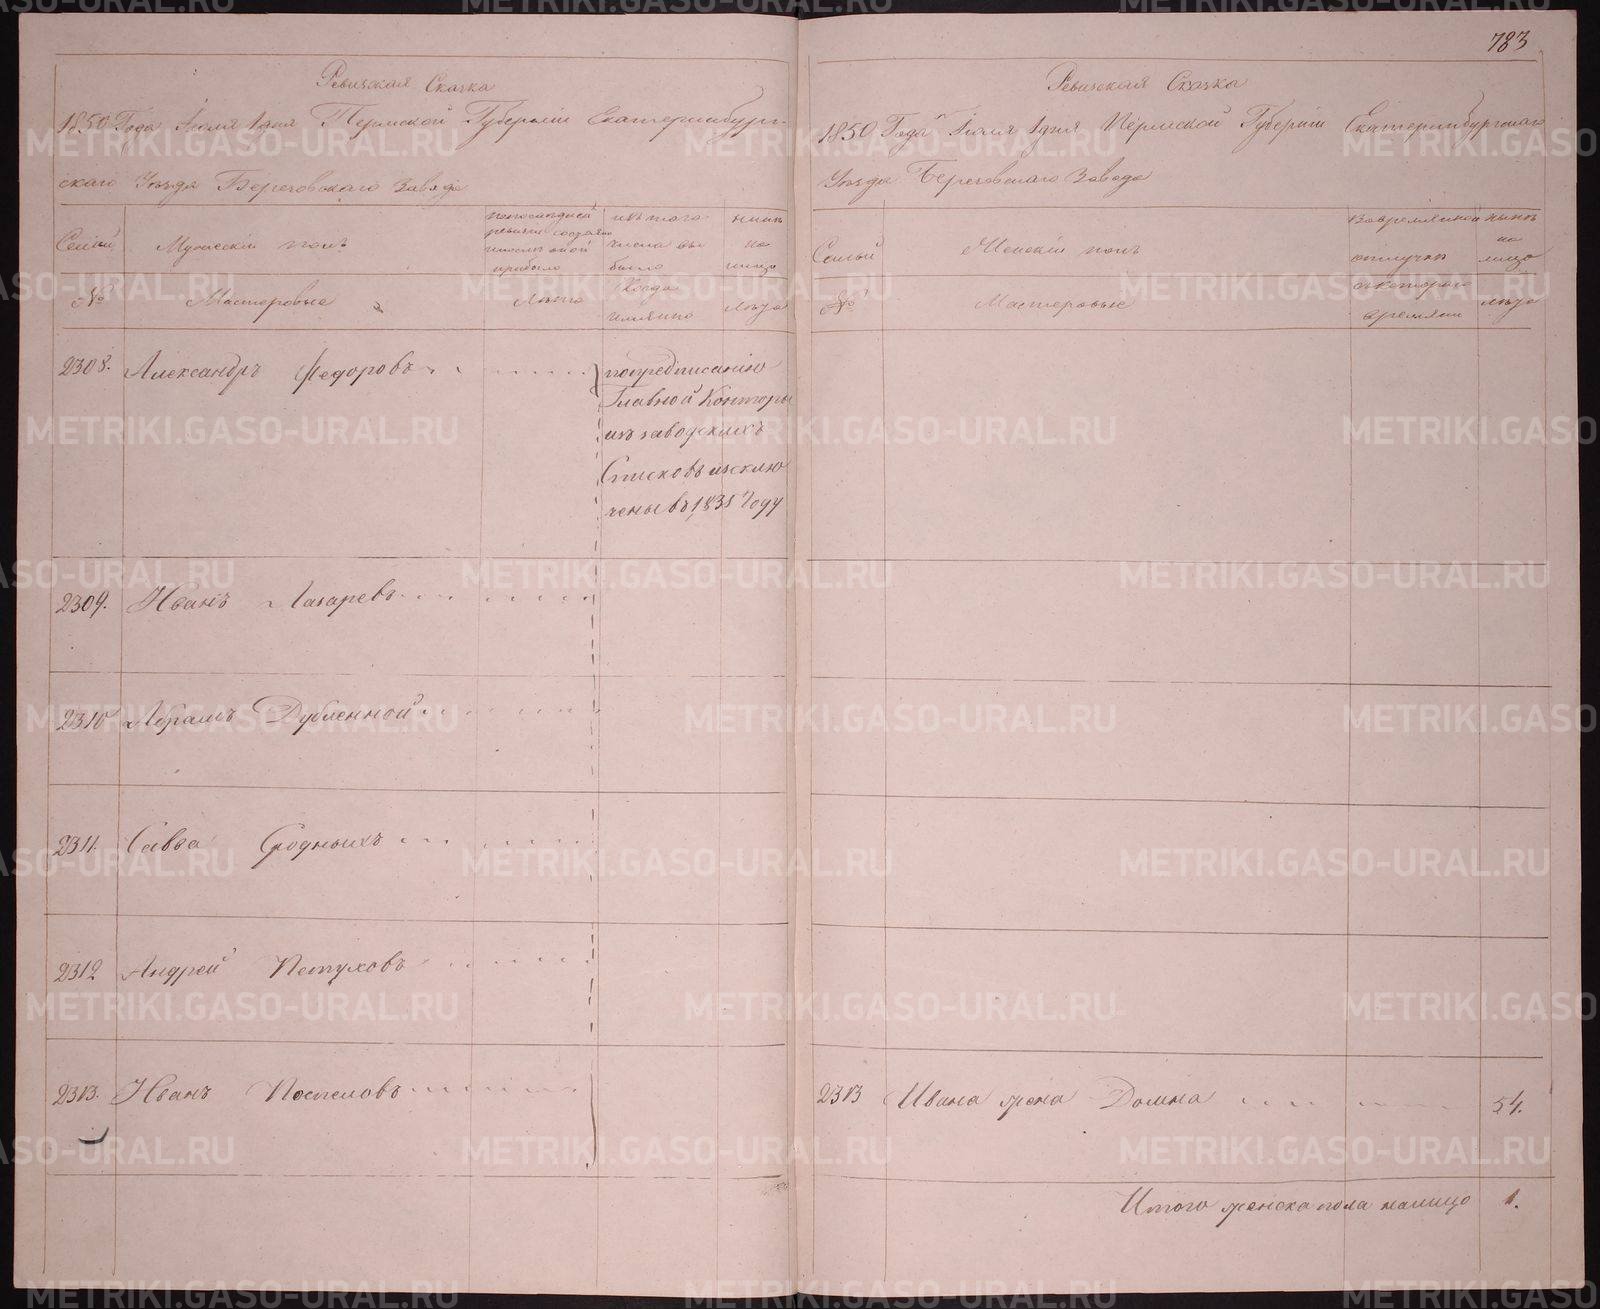 783
Ревизская Сказка
1850 Года Июля 1 дня Пермской Губернiи Екатеринбург-
скаго Уезда Березовскаго Завода
Семьи
Мужескiй полъ
изъ того
числа вы
было
ныне
на
лицо
№
Мастеровые
Лета
Когда
имянно
лета
2308. Александръ Федоровъ
по предписанiю
Главной Конторы
изъ заводскихъ
Списковъ исклю
чены въ 1835 Году
2309. Иванъ Лазаревъ
2310 Абрамъ Дубленной
2311. Савва Сродныхъ
2312 Андрей Петуховъ
2313. Иванъ Поспеловъ
Ревизская Сказка
1850 Года Июля 1 дня Пермской Губернiи Екатеринбургскаго
Уезда Березовскаго Завода
Семьи
Женскiй полъ
Во временной
отлучки
ныне
на
лицо
№
Мастеровые
съ котораго
времяни
лета
2313 Ивана жена Домна 54.
Итого женска пола налицо 1.
METRIKI.GASO-URAL.RU